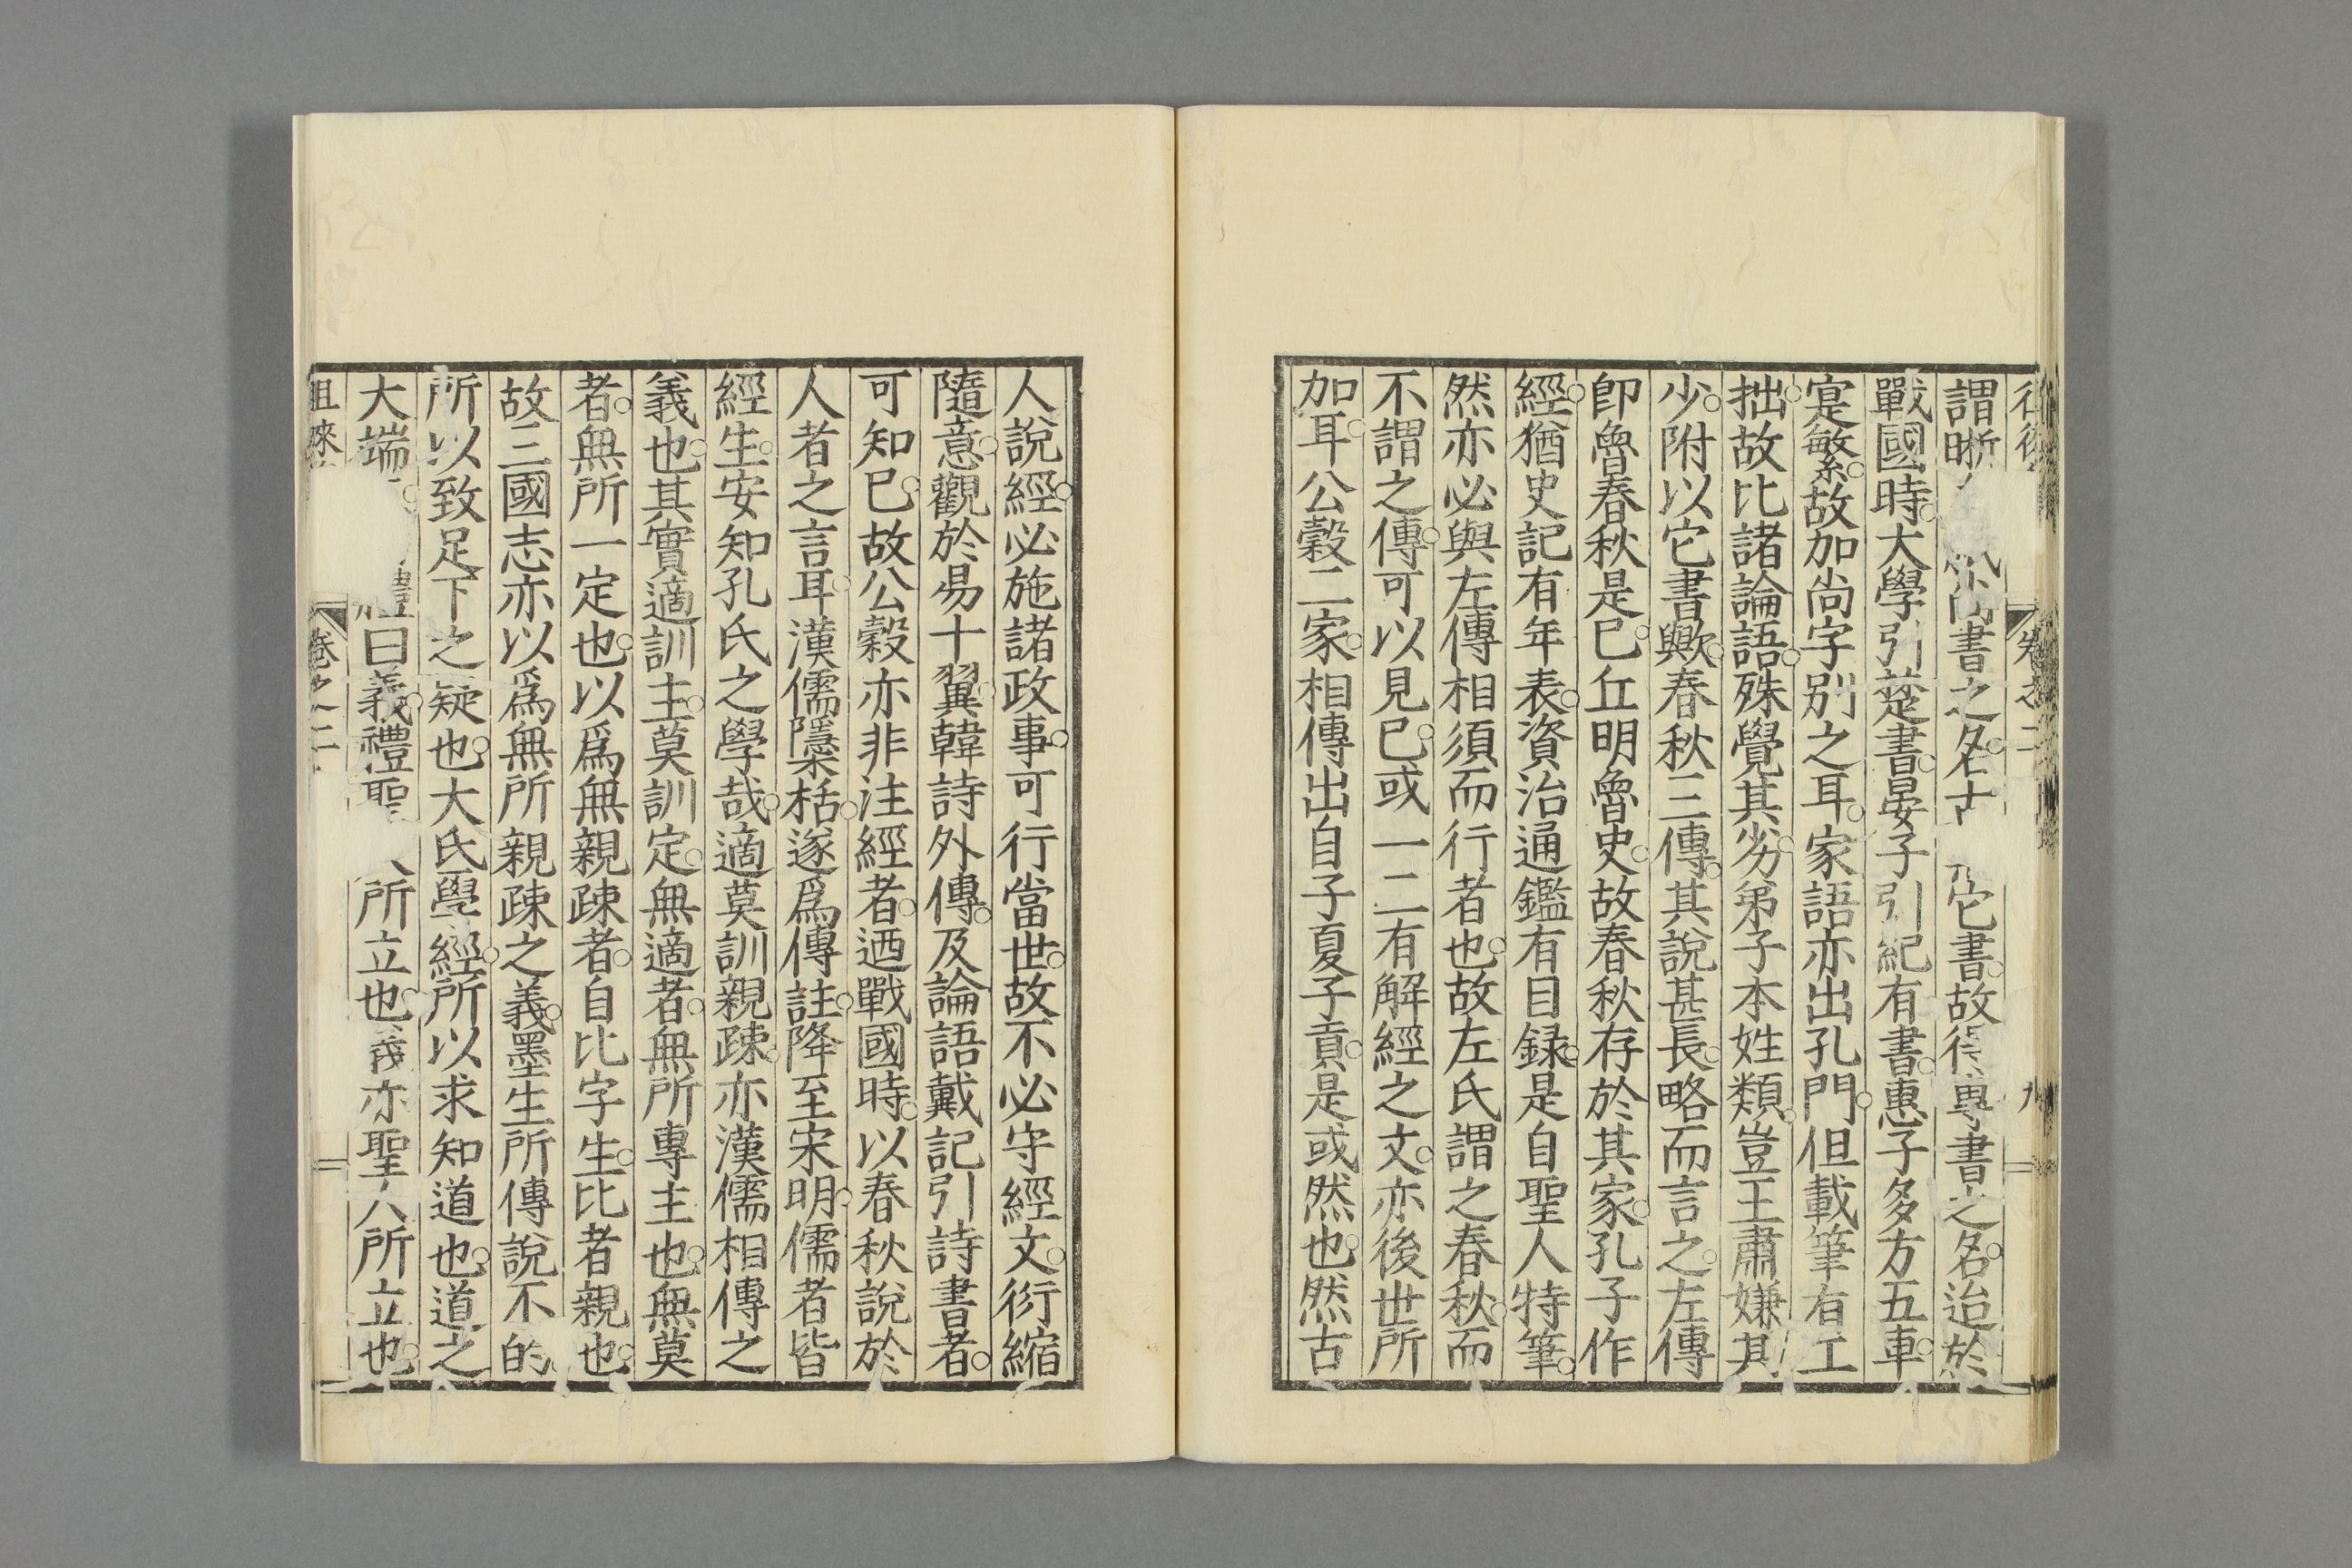 卷之二
九
謂晰
尚書之名古
它書故
專書之名迨於
戰國時大學引楚書晏子引紀有書惠子多方五車
寔繁故加尚字別之耳家語亦出孔門但載筆有工
拙故比諸論語殊覺其劣弟子本姓類豈王肅嫌其
少附以它書歟春秋三傳其說甚長略而言之左傳
卽魯春秋是已丘明魯史故春秋存於其家孔子作
經猶史記有年表資治通鑑有目録是自聖人特筆
然亦必與左傳相須而行者也故左氏謂之春秋而
不謂之傳可以見已或一二有解經之文亦後世所
加耳公穀二家相傳出自子夏子貢是或然也然古
人說經必施諸政事可行當世故不必守經文衍縮
隨意觀於易十翼韓詩外傳及論語戴記引詩書者
可知已故公穀亦非注經者迺戰國時以春秋說於
人者之言耳漢儒隱栝遂爲傳註降至宋明儒者皆
經生安知孔氏之學哉適莫訓親疎亦漢儒相傳之
義也其實適訓主莫訓定無適者無所專主也無莫
者無所一定也以爲無親疎者自比字生比者親也
故三國志亦以爲無所親疎之義墨生所傳說不的
所以致足下之疑也大氐學經所以求知道也道之
大端
禮曰義禮聖人所立也義亦聖人所立也
徂徠
卷之二